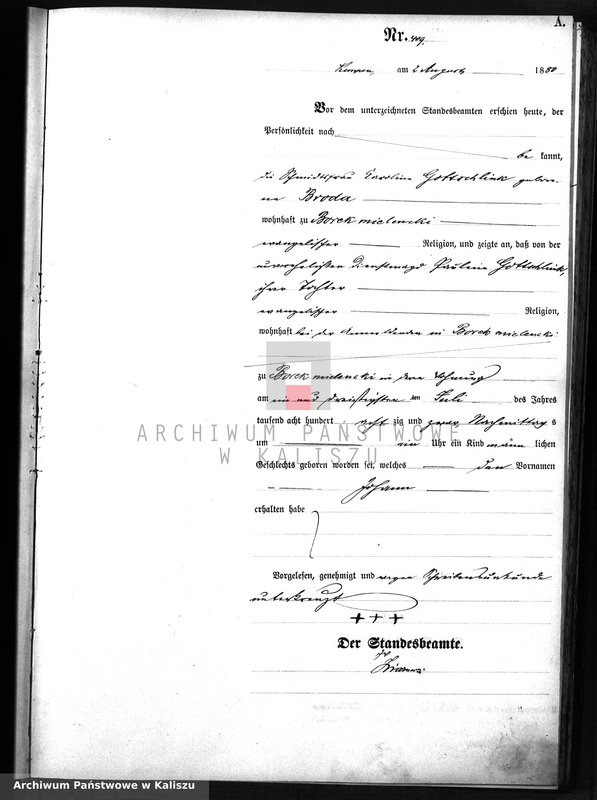 A.
Nr. 419.
Kempen, am 2 August 1880
Vor dem unterzeichneten Standesbeamten erschien heute, der
Persönlichkeit nach
be kannt,
die Schmidtsfrau Karoline Gottschlink gebore-
ne Broda
wohnhaft zu Borek mielencki
evangelischer Religion, und zeigte an, daß von der
unverehelichten Dienstmagd Pauline Gottschlink,
ihrer Tochter
evangelischer Religion,
wohnhaft bei der Anmeldenden in Borek mielencki
zu Borek mielencki in deren Wohnung
am ein und dreißigsten Juli des Jahres
tausend acht hundert acht zig und zwar Nachmittag s
um ein Uhr ein Kind männ lichen
Geschlechts geboren worden sei, welches den Vornamen
Johann
erhalten habe
Vorgelesen, genehmigt und wegen Schreibensunkunde
unterkreuzt
+ + +
Der Standesbeamte.
ARCHIWUM PAŃSTWOWE
W KALISZU
Archiwum Państwowe w Kaliszu